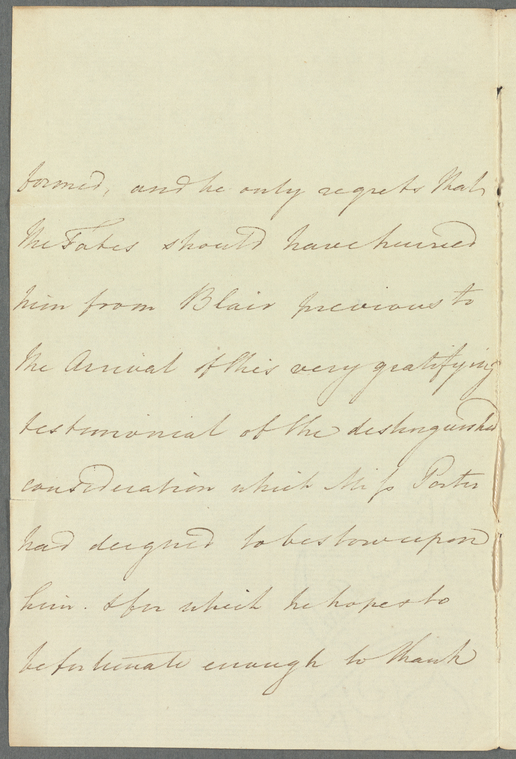 formed, and he only regrets that
the Fates should have hurried
him from Blair previous to
the Arrival of this very gratifying
testimonial of the distinguished
consideration which Miss Porter
had deigned to bestow upon
him. & for which he hopes to
be fortunate enough to thank